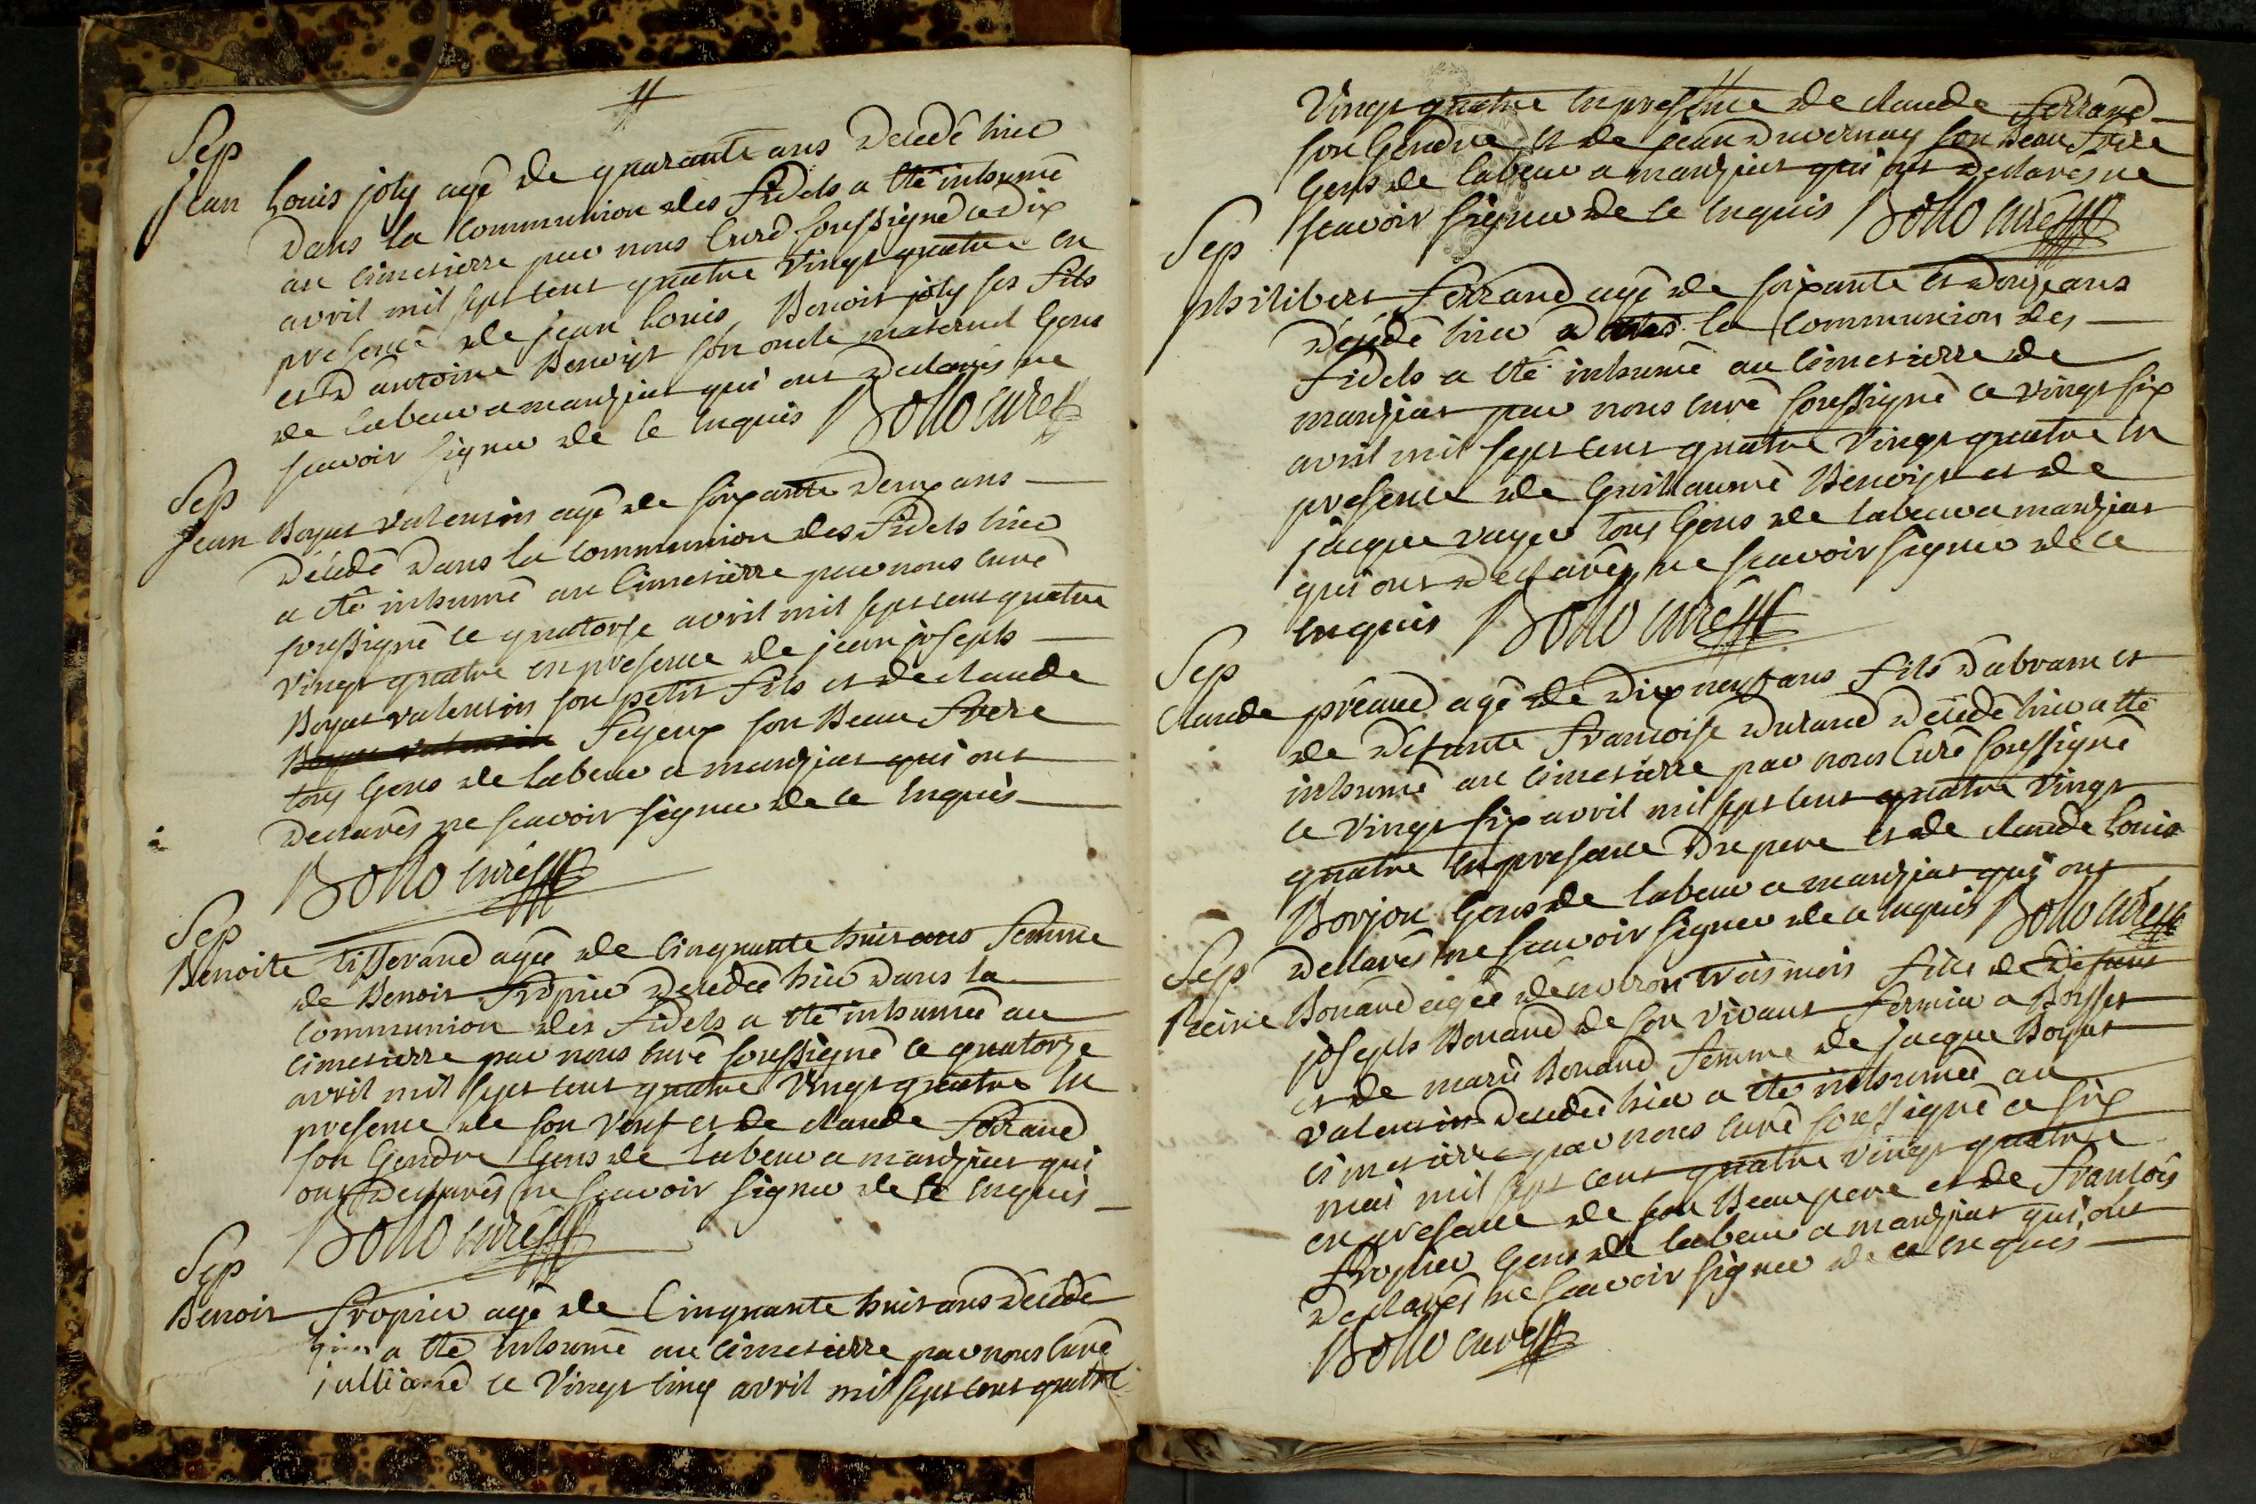 Sep
Jean Louis joly agé de quarante ans decedé hier
Dans la Communion des fidels a été inhumé
au Cimetierre par nous Curé soussigné ce dix
avril mil sept cent quatre vingt quatre en
presence de jean Louis, Benoit joly ses fils
et D'antoine Benoist son oncle maternel Gens
de labeur a mardjiat qui ont declarés ne
scavoir signer de ce enquis Bollo curé
Sep
Jean Boyat valentin agé de soixante deux ans
décédé Dans la communion des fidels hier
a été inhumé au Cimetierre par nous curé
soussigné ce quatorse avril mil sept cent quatre
vingt quatre en presence de jean joseph
Boyat valentin son petit fils et de claude
feyeux son Beau frere
tous Gens de labeur a mardjiat qui ont
declarés ne scavoir signer de ce enquis
Bollo curé
Sep
Benoite tisserand agée de Cinquante huit ans femme
de Benoit fropier decedée hier Dans la
communion des fidels a été inhumée au
cimetierre par nous curé soussigné ce quatorze
avril mil sept cent quatre vingt quatre en
presence de son veuf et de claude ferrand
son Gendre Gens de labeur a mardjiat qui
ont declarés ne scavoir signer de ce enquis
Bollo curé
Sep
Benoit fropier agé de Cinquante huit ans décédé
hier a été inhumé au cimetierre par nous curé
julliard ce vingt cinq avril mil sept cent quatre
vingt quatre en presence de claude ferrand
son Gendre et de jean duvernay son Beau frere
Gens de labeur a mardjiat qui ont declarés ne
scavoir signer de ce enquis Bollo curé
Sep
philibert ferrand agé de soixante et douze ans
décédé hier dans la Communion des
fidels a été inhumé au Cimetierre de
mardjiat par nous curé soussigné ce vingt six
avril mil sept cent quatre vingt quatre en
presence de Guillaume Benoist et de
jacque vayer tous Gens de labeur a mardjiat
qui ont declarés ne scavoir signer de ce
enquis Bollo curé
Sep
Claude préaud agé de dix neuf ans fils d'abram et
de défunte francoise durand décédé hier a été
inhumé au cimetierre par nous Curé soussigné
ce vingt six avril mil sept cent quatre vingt
quatre en presence du pere et de claude Louis
Borjon Gens de labeur a mardjiat qui ont
declarés ne scavoir signer de ce enquis Bollo curé
Sep
Reine Bonand agée d'environ trois mois fille de défunt
joseph Bonand de son vivant fermier a Boisset
et de marie Bonand femme de jacque Boyat
valentin decedée hier a été inhumée au
cimetierre par nous curé soussigné ce six
mai mil sept cent quatre vingt quatre
en presence de son Beau pere et de francois
fropier Gens de labeur a mardjiat qui ont
declarés ne scavoir signer de ce enquis
Bollo curé